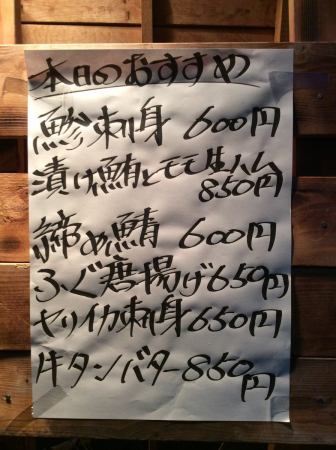 本日のおすすめ
鯵刺身 600円
漬け鮪とモモ生ハム
850円
締め鯖 600円
ふぐ唐揚げ 650円
ヤリイカ刺身 650円
牛タンバター 850円